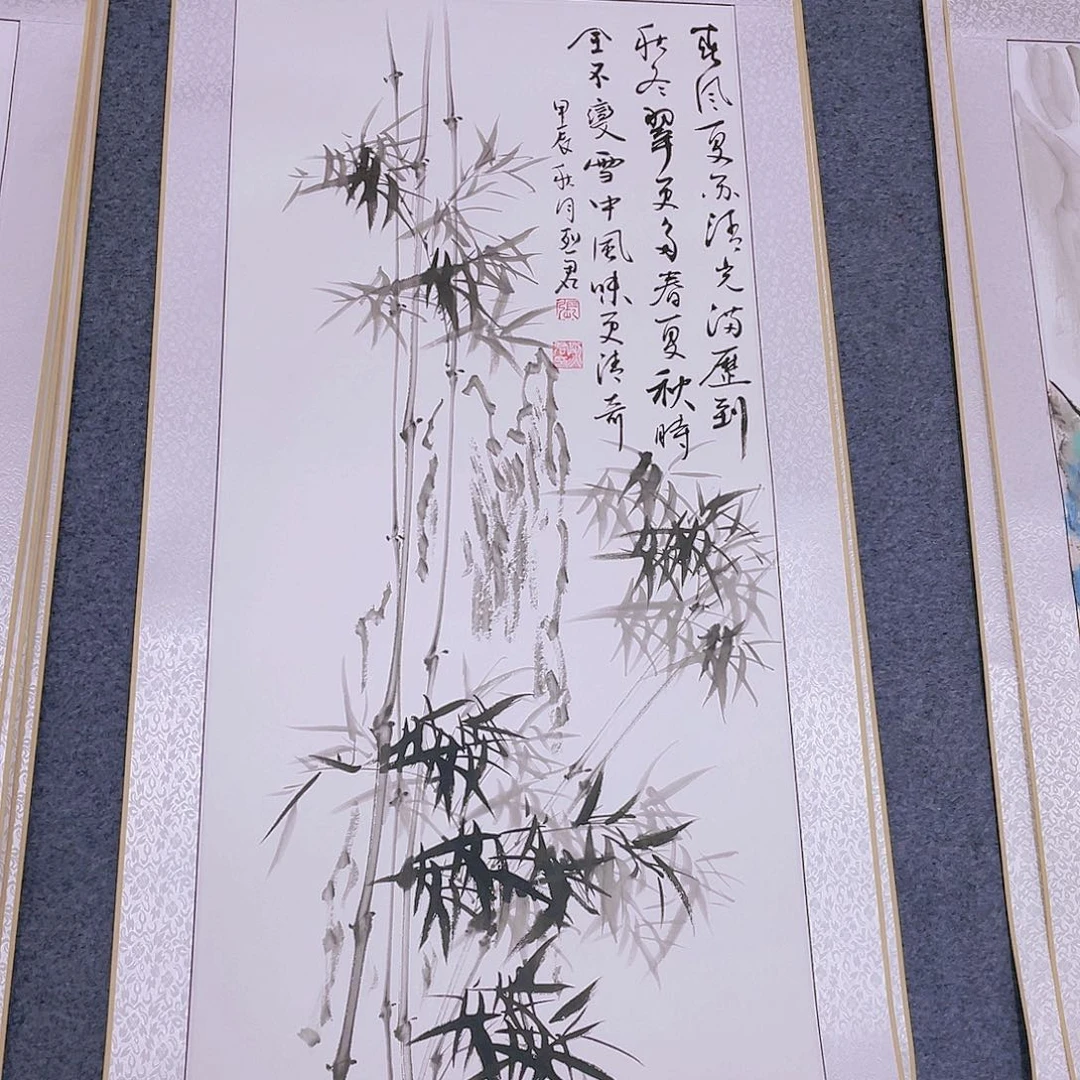 春风夏雨清光满歷到
秋冬翠更多春夏秋時
全不變雪中風味更清奇
甲辰秋月烈君